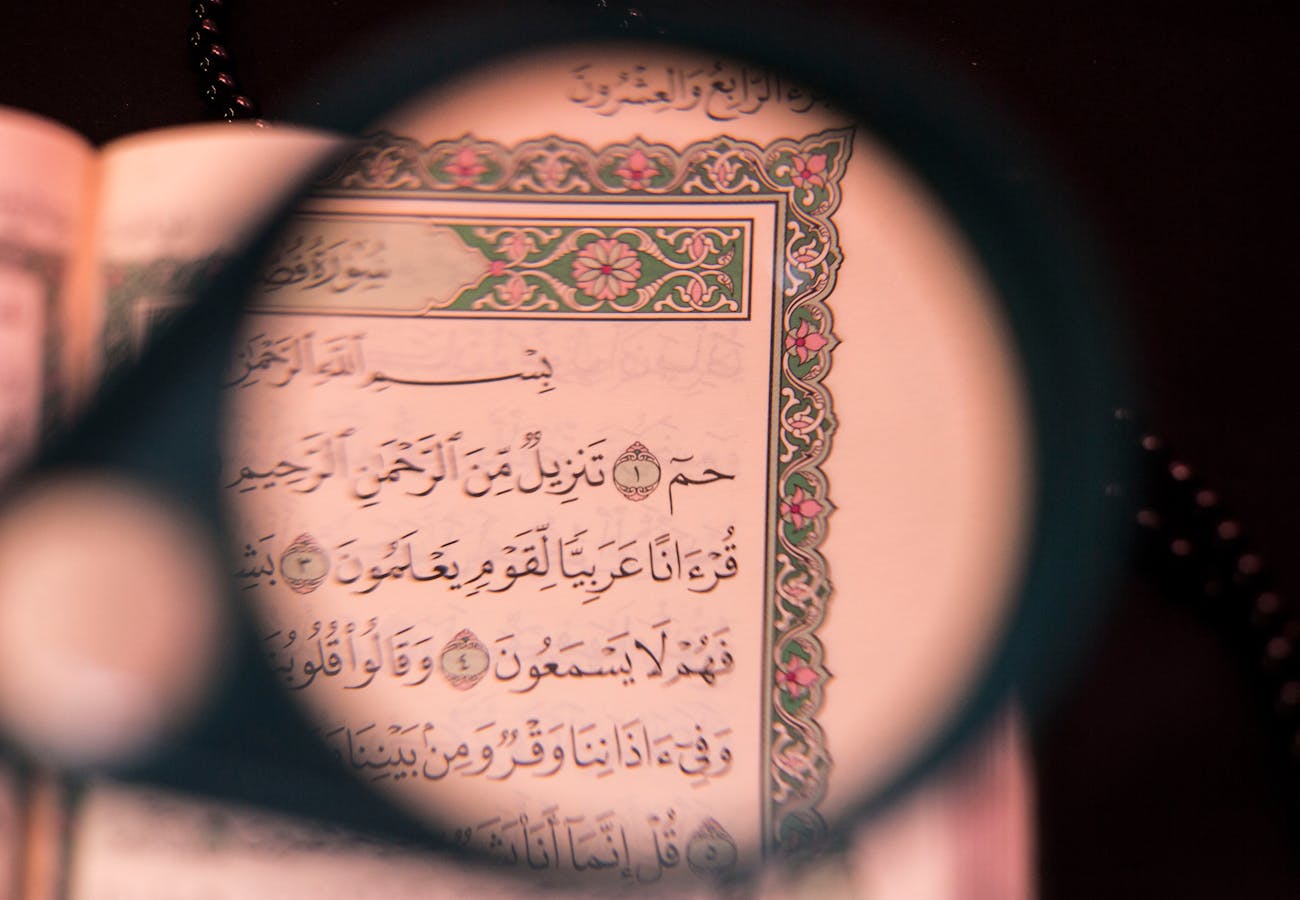 الرَّابِعُ وَالْعِشْرُونَ
سُورَةُ
بِسْمِ ٱللَّهِ ٱلرَّحْمَٰنِ
حمٓ ١ تَنزِيلٌ مِّنَ ٱلرَّحْمَٰنِ ٱلرَّحِيمِ
قُرْءَانًا عَرَبِيًّا لِّقَوْمٍ يَعْلَمُونَ ٣
فَهُمْ لَا يَسْمَعُونَ ٤ وَقَالُوا۟
وَفِىٓ ءَاذَانِنَا وَقْرٌ وَمِنۢ بَيْنِنَا
٥ قُلْ إِنَّمَآ أَنَا۠